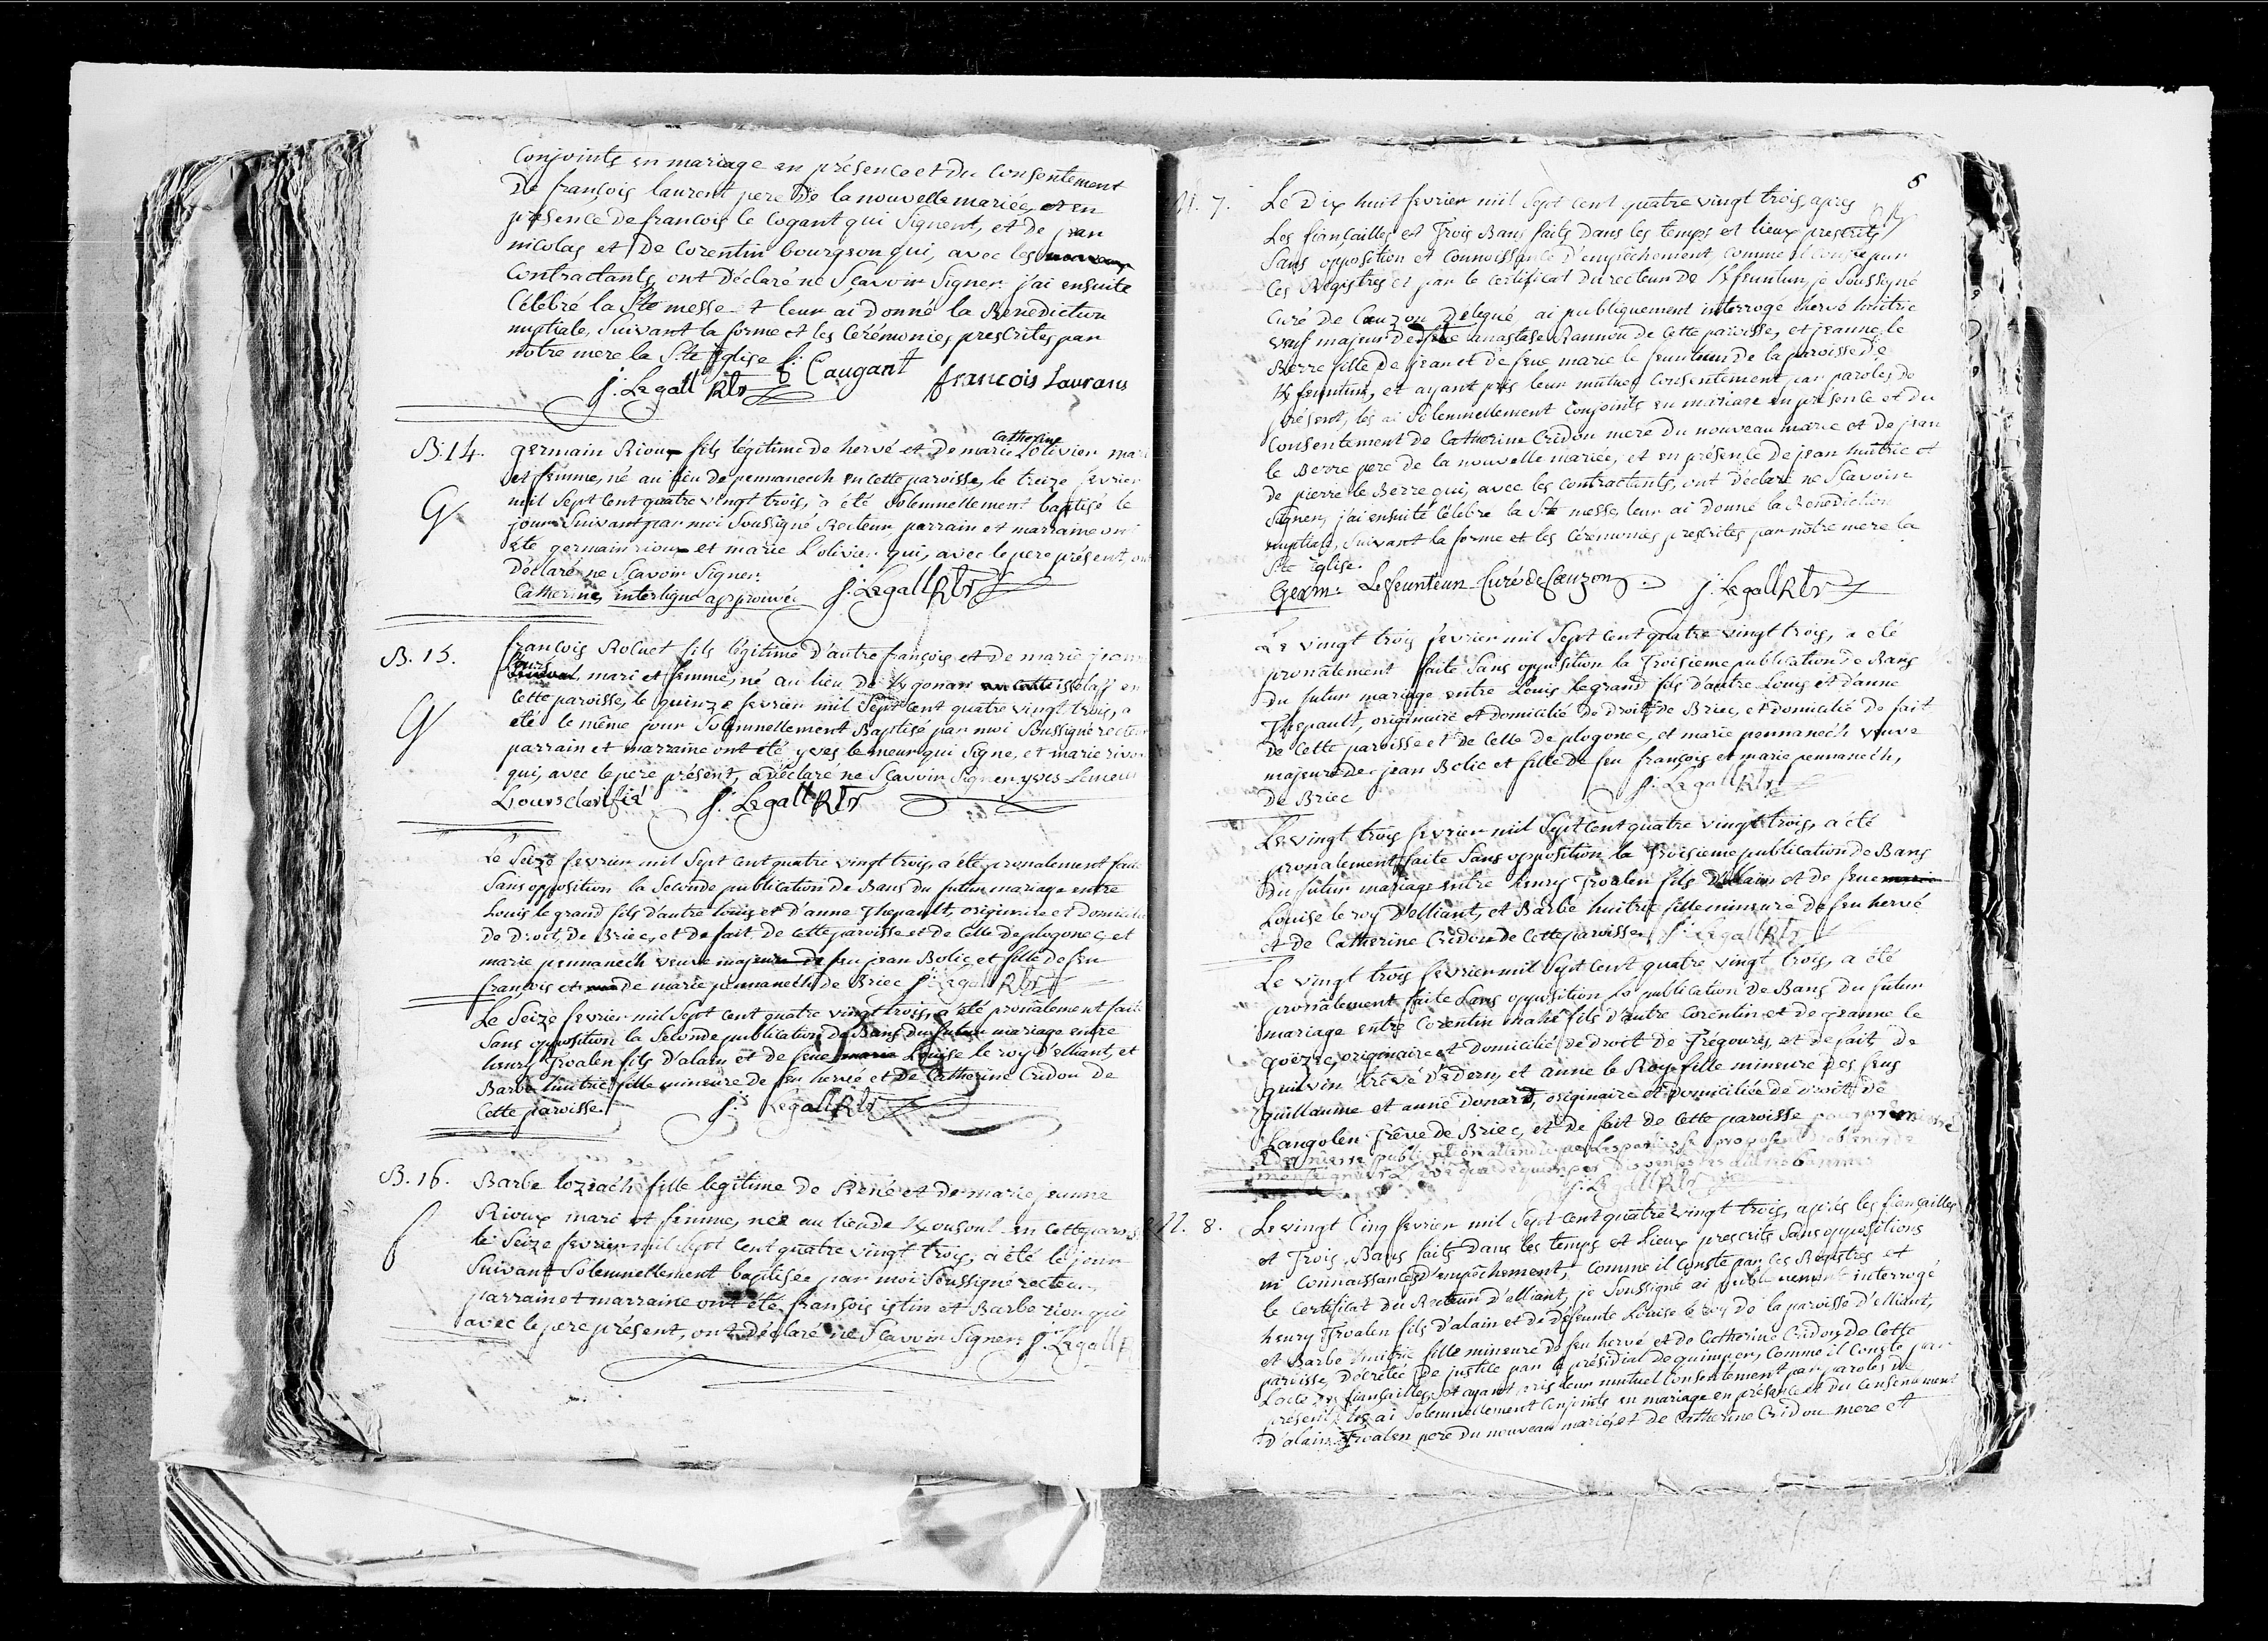 Conjoints en mariage en présence et du consentement
De françois laurent pere De la nouvelle mariée, et en
présence de francois le Cogant qui signent, et de jean
nicolas et De Corentin bourgeon qui, avec les
Contractants, ont Déclaré ne Sçavoir Signer. j'ai ensuite
Célébré la Ste messe et leur ai Donné la Benediction
nuptiale, Suivant la forme et les Cérémonies prescrites par
notre mere la Ste Eglise f: Caugant
j: Legall Rtr françois Laurans
B. 14. germain Rioux fils légitime de hervé et de marie Catherine L'olivier mari
et femme, né au lieu de pennanech en cette paroisse, le treize fevrier
mil Sept Cent quatre vingt trois, a été Solemnellement baptisé le
G
jour Suivant par moi Soussigné Recteur, parrain et marraine ont
été germain rioux et marie L'olivier qui, avec le pere présent, ont
Déclaré ne Sçavoir Signer.
Catherine, interligne approuvé j: Legall Rtr
B. 15. françois Roluet fils légitime d'autre françois et de marie jeanne
Lours mari et femme, né au lieu de Kgonan isselaff en
Cette paroisse, le quinze fevrier mil Sept Cent quatre vingt trois, a
G
été le même jour Solemnellement Baptisé par moi Soussigné recteur
parrain et marraine ont été yves le meur qui Signe, et marie
qui, avec le pere présent, a déclaré ne Sçavoir Signer. yves Lemeur
Lours clarifié j: Legall Rtr
Le Seize fevrier mil Sept Cent quatre vingt trois, a été pronalement faite
Sans opposition la Seconde publication De Bans du futur mariage entre
Louis le grand fils d'autre louis et d'anne Thepault, originaire et Domicilié
de Droit, de Briec, et de fait de Cette paroisse et de Celle de plogonec, et
marie pennanech veuve majeure de feu jean Bolic, et fille de feu
françois et de marie pennanech de Briec j: Legall Rtr
Le Seize fevrier mil Sept Cent quatre vingt trois, a été pronalement faite
Sans opposition la Seconde publication de Bans Du futur mariage entre
henry Troalen fils d'alain et de feue marie Louise le roy d'elliant, et
Barbe huitric fille mineure de feu hervé et de Catherine Cridou de
Cette paroisse. j: Legall Rtr
B. 16. Barbe lozeach fille legitime de René et de marie jeanne
Rioux mari et femme, née au lieu de en Cette paroisse
f
le Seize fevrier mil Sept Cent quatre vingt trois, a été le jour
Suivant Solemnellement baptisée par moi Soussigné recteur
parrain et marraine ont été françois istin et Barbe riou qui
avec le pere présent, ont déclaré ne Sçavoir Signer. j: Legall
6
M. 7. Le Dix huit fevrier mil Sept Cent quatre vingt trois, apres
Les fiançailles et Trois Bans faits Dans les temps et lieux prescrits
Sans opposition et Connoissance d'empêchement, Comme il conste par
Ces Registres et par le Certificat Du recteur de Kfeunteun, je Soussigné
Curé de Cauzon Délégué ai publiquement interrogé hervé huitric
veuf majeur de feue anastase Rannou de Cette paroisse, et jeanne le
Berre fille de jean et de feue marie le feunteun de la paroisse de
Kfeunteun, et ayant pris leur mutuel Consentement par paroles de
présent, les ai Solemnellement Conjoints en mariage en présence et du
Consentement de Catherine Cridou mere du nouveau marié et de jean
le Berre pere de la nouvelle mariée, et en présence de jean huitric et
De pierre le Berre qui, avec les contractants, ont déclaré ne Scavoir
Signer, j'ai ensuite Célébré la Ste messe, leur ai donné la Benediction
nuptiale, Suivant la forme et les Cérémonies prescrites par notre mere la
Ste Eglise.
Germ: Lefeunteun Curé de Cauzon. j: Legall Rtr
Le vingt trois fevrier mil Sept Cent quatre vingt trois, a été
pronalement faite Sans opposition la Troisieme publication De Bans
Du futur mariage entre Louis legrand fils d'autre Louis et d'anne
Thepault, originaire et Domicilié De Droit, De Briec, et Domicilié de fait
De Cette paroisse et de Celle de plogonec, et marie pennanech veuve
majeure de jean Bolic et fille de feu françois et marie pennanech,
De Briec j: Legall Rtr
Le vingt trois fevrier mil Sept Cent quatre vingt trois, a été
pronalement faite Sans opposition la Troisieme publication de Bans
Du futur mariage entre henry Troalen fils d'alain et de feue marie
Louise le roy D'elliant, et Barbe huitric fille mineure de feu hervé
et de Catherine Cridou de Cette paroisse. j: Legall Rtr
Le vingt trois fevrier mil Sept Cent quatre vingt trois, a été
pronalement faite Sans opposition la publication de Bans du futur
mariage entre Corentin mahé fils d'autre Corentin et de jeanne le
goëzec, originaire et Domicilié de Droit de Trégourez, et de fait de
guilvin trêve d'edern, et anne le Roy fille mineure des feus
guillaume et anne Donard, originaire et Domiciliée de Droit de
Langolen Trêve de Briec, et de fait de Cette paroisse pour premiere
et derniere publication attendu que les parties se proposent d'obtenir de
monseigneur L'évêque de quimper dispenses des autres bannies
j: Legall Rtr
M. 8. Le vingt Cinq fevrier mil Sept Cent quatre vingt trois, après les fiançailles
et Trois Bans faits Dans les temps et lieux prescrits Sans oppositions
ni Connaissance d'empêchement, Comme il Conste par Ces Registres et
le Certificat du Recteur d'elliant, je Soussigné ai publiquement interrogé
henry Troalen fils d'alain et de défeunte Louise le roy de la paroisse d'elliant,
et Barbe huitric fille mineure de feu hervé et de Catherine Cridou de Cette
paroisse, Décrétée de justice par le présidial de quimper, Comme il Conste par
L'acte de fiançailles, et ayant pris leur mutuel Consentement par paroles de
présent, les ai Solemnellement Conjoints en mariage en présence et du Consentement
d'alain Troalen pere du nouveau marié, et de Catherine Cridou mere et